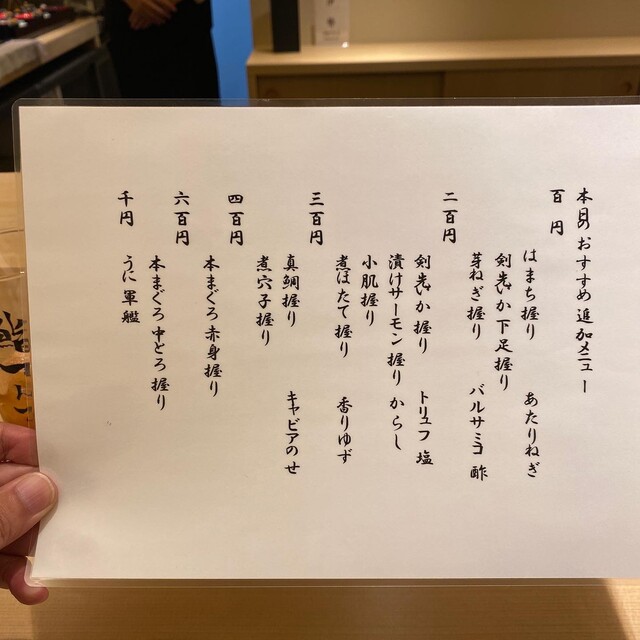 本日のおすすめ追加メニュー
百円
はまち握り あたりねぎ
剣先いか下足握り
芽ねぎ握り バルサミコ酢
二百円
剣先いか握り トリュフ塩
漬けサーモン握り からし
小肌握り
煮ほたて握り 香りゆず
三百円
真鯛握り キャビアのせ
煮穴子握り
四百円
本まぐろ赤身握り
六百円
本まぐろ中とろ握り
千円
うに軍艦